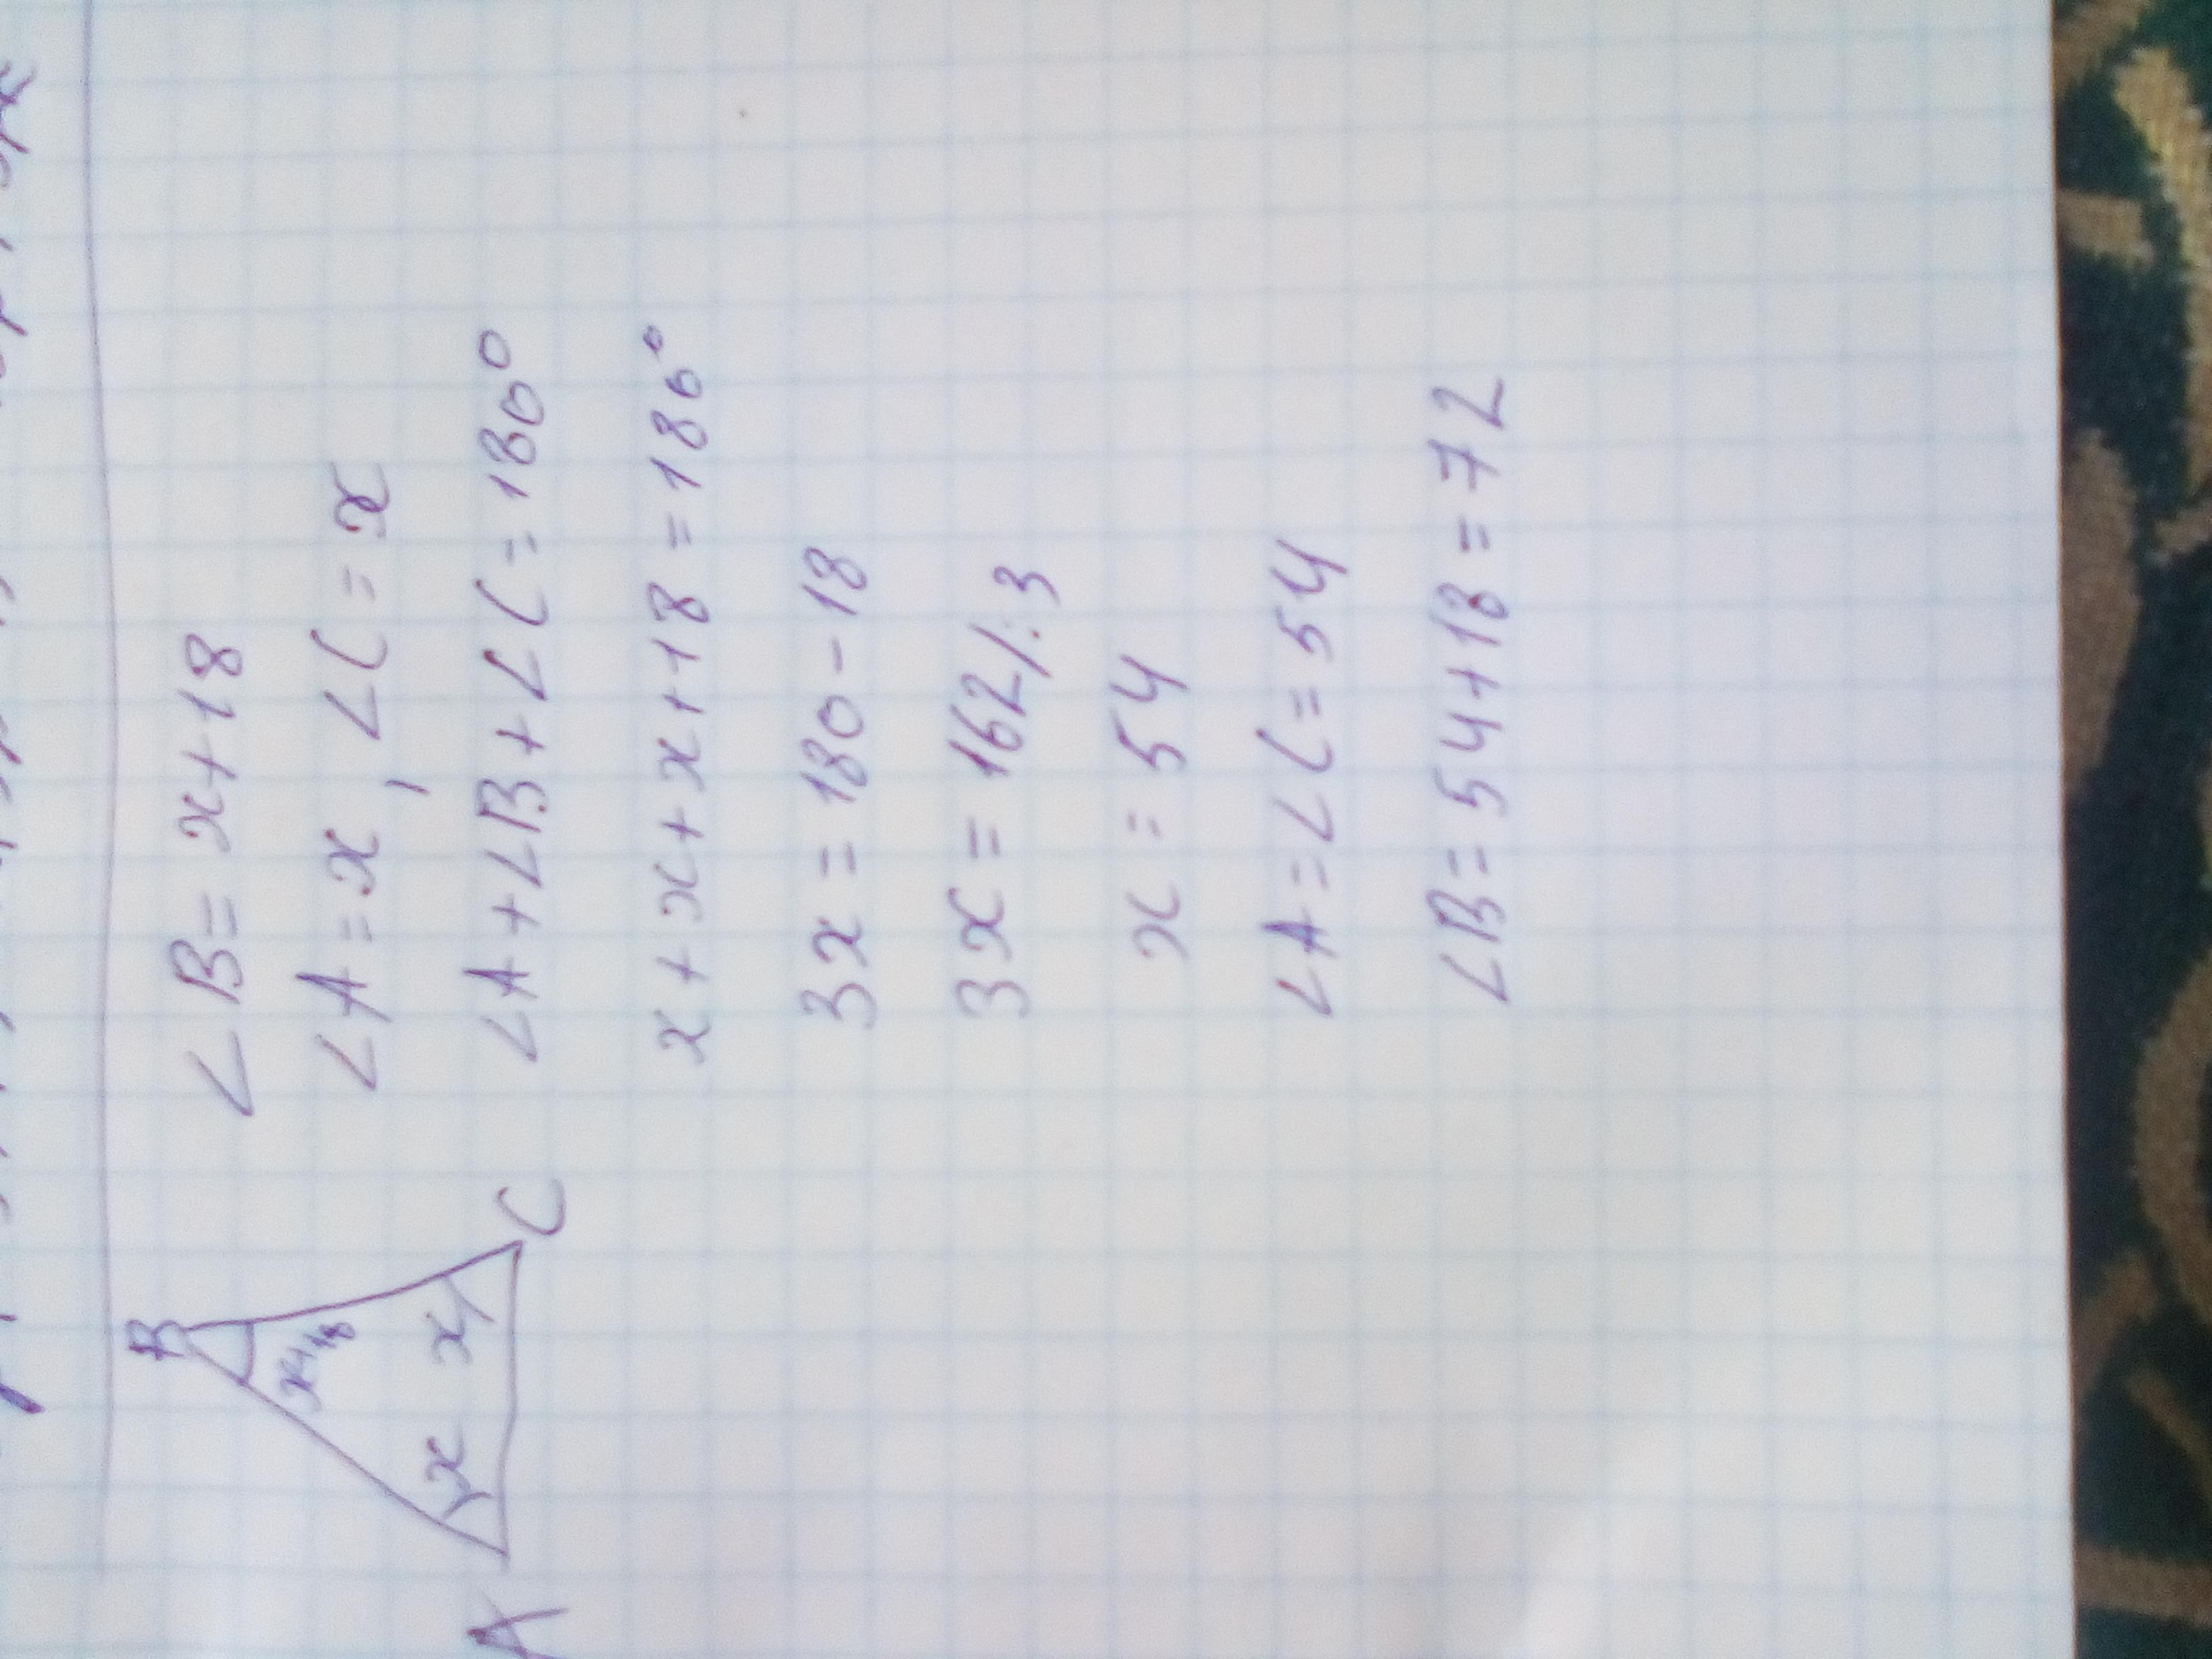 B
x+18
x x
A C
∠B = x+18
∠A = x, ∠C = x
∠A + ∠B + ∠C = 180°
x + x + x + 18 = 180°
3x = 180 - 18
3x = 162 /:3
x = 54
∠A = ∠C = 54
∠B = 54 + 18 = 72